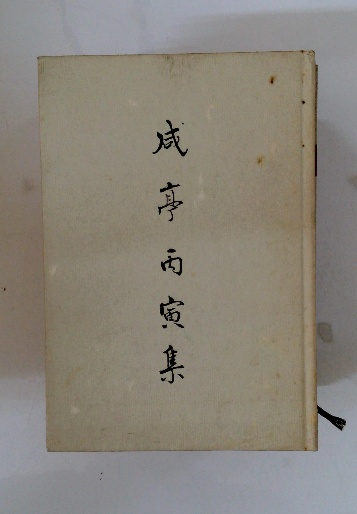 咸亭丙寅集